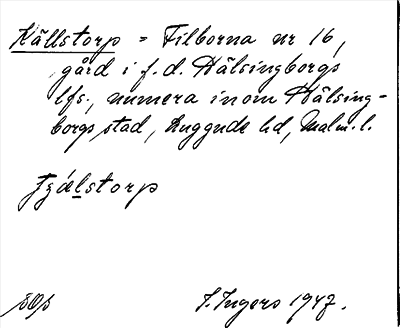 Källstorp = Filborna nr 16,
gård i f.d. Hälsingborgs
lfs., numera inom Hälsing-
borgs stad, Luggude hd, Malm. l.
I. Ingers 1947.